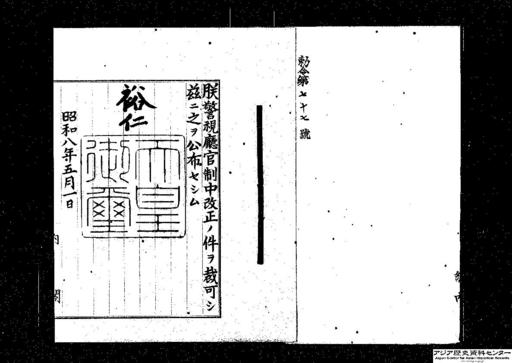 勅令第七十七號
朕警視廳官制中改正ノ件ヲ裁可シ
茲ニ之ヲ公布セシム
裕仁
天皇御璽
昭和八年五月一日
内 閣
アジア歴史資料センター
Japan Center for Asian Historical Records